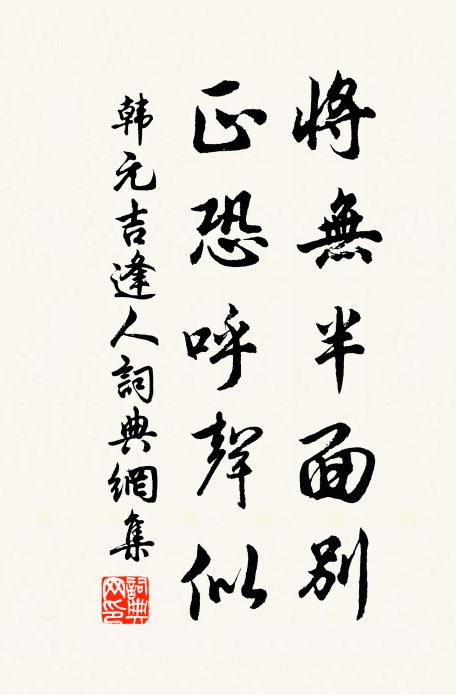 將無半面別
正恐呼聲似
韩元吉逢人詞典網集
詞典網印